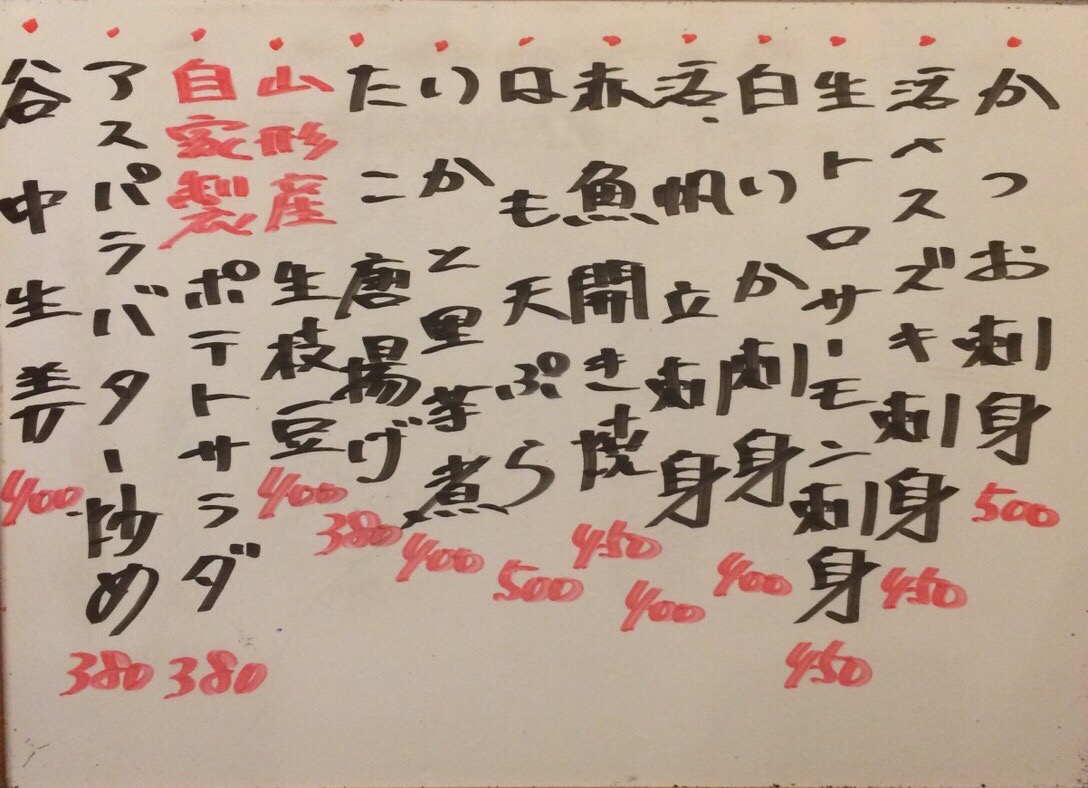 かつお刺身 500
活〆スズキ刺身 450
生トロサーモン刺身 450
白いか刺身 400
活帆立刺身 400
赤魚開き焼 450
はも天ぷら 500
いかと里芋煮 400
たこ唐揚げ 380
山形産生枝豆 400
自家製ポテトサラダ 380
アスパラバター炒め 380
谷中生姜 400